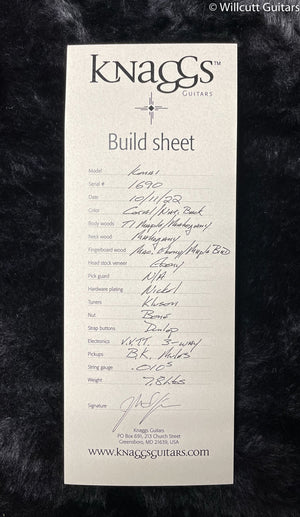 © Willcutt Guitars
KNAGGS™
GUITARS
Build sheet
Model Kenai
Serial # 1690
Date 10/11/22
Color Coral/Nat. Back
Body woods T1 Maple/Mahogany
Neck wood Mahogany
Fingerboard wood Ebony/Maple
Head stock veneer Ebony
Pick guard N/A
Hardware plating Nickel
Tuners Kluson
Nut Bone
Strap buttons Dunlop
Electronics V.V.T.T. 3-way
Pickups B.K. Mules
String gauge .010s
Weight 7.8 Lbs
Signature
Knaggs Guitars
PO Box 691, 213 Church Street
Greensboro, MD 21639, USA
www.knaggsguitars.com